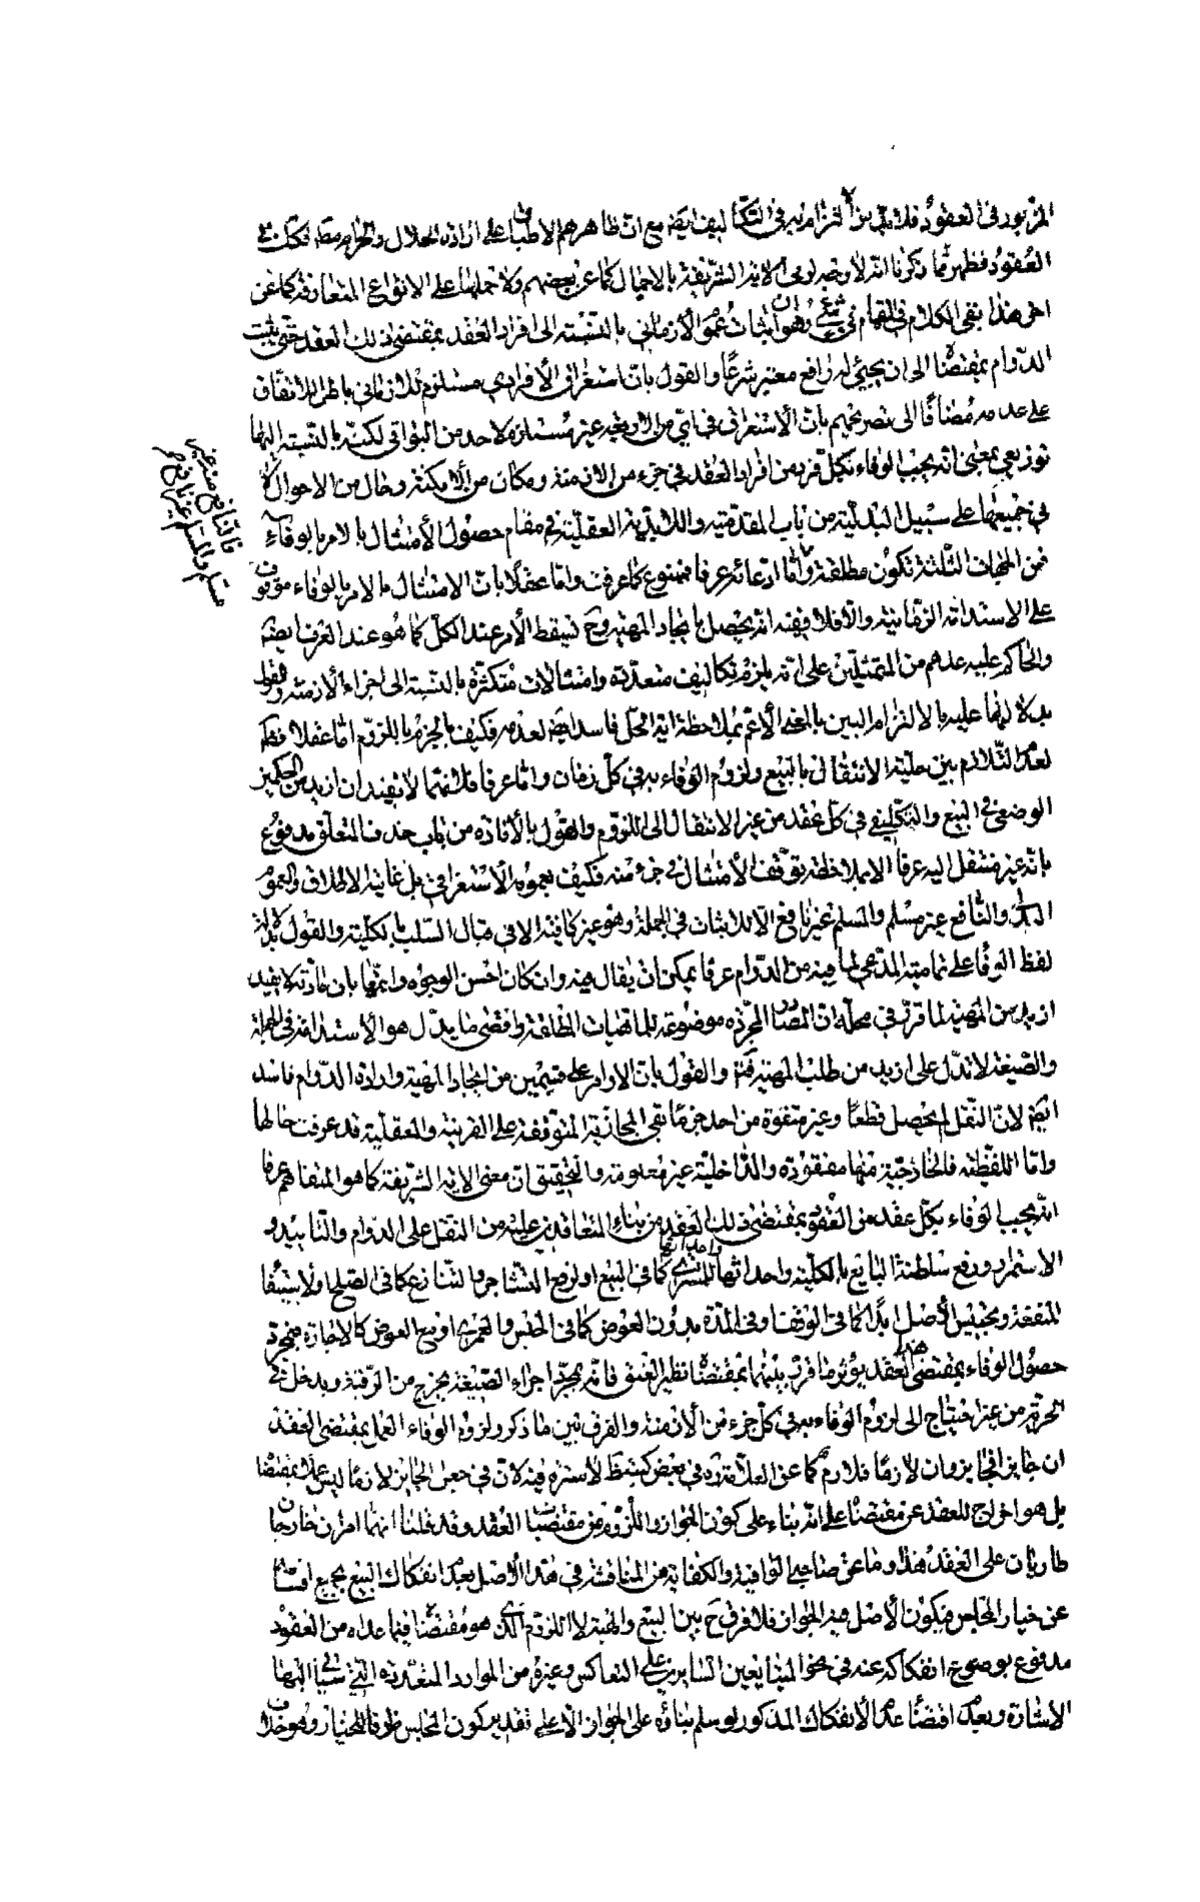 المزبور في العقود فلا بد من التزامه به في التكاليف ايضا مع ان ظاهرهم الاطباق على ارادة الحلال والحرام
العقود فظهر مما ذكرنا انه لا وجه لرمي الاية الشريفة بالاجمال كما عن بعضهم ولا حملها على الانواع المتعارفة كما عن
اخر هذا بقي الكلام في المقام في شيء وهو ان اثبات عموم الازماني بالنسبة الى افراد العقد بمقتضى ذلك العقد حتى يثبت
الدوام بمقتضاه الى ان يجيئ له رافع معتبر شرعا والقول بان استغراق الافرادي مستلزم للازماني باطل للاتفاق
على عدمه مضافا الى تصريحهم بان الاستغراق في اي من الاربعة غير مستلزم لاحد من البواقي لكنه بالنسبة اليها
توزيعي بمعنى انه يجب الوفاء بكل فرد من افراد العقد في جزء من الازمنة ومكان من الامكنة وحال من الاحوال
في جميعها على سبيل البدلية من باب المقدمية واللابدية العقلية في مقام حصول الامتثال بالامر بالوفاء
فمن الجهات الثلثة تكون مطلقة واما ادعائه عرفا فممنوع كما عرفت واما عقلا بان الامتثال بالامر بالوفاء موقوف
على الاستدامة الزمانية والا فلا ففيه انه يحصل بايجاد المهية وح يسقط الامر عند الكل كما هو عند العرف ايضا
والحاكم عليه عدهم من المتمثلين على انه يلزم تكاليف متعددة وامتثالات متكثرة بالنسبة الى اجزاء الازمنة والقول
بدلالتها عليه بالالتزام البين بالمعنى الاعم بملاحظة اية الحل فاسد ايضا لعدمه فكيف بالجزم باللزوم اما عقلا
لعدم التلازم بين حلية الانتقال بالبيع ولزوم الوفاء به في كل زمان واما عرفا فلانهما لا يفيدان ازيد من الحكمين
الوضعي في البيع والتكليفي في كل عقد من غير الانتقال الى اللزوم والقول بالافادة من باب حذف المتعلق مدفوع
بانه غير منتقل اليه عرفا الا بملاحظة توقف الامتثال في جزء منه فكيف بعمومه الاستغراقي بل غايته الاطلاق والعموم
البدلي والنافع غير مسلم والمسلم غير نافع الا للاثبات في الجملة وهو غير كافية الا في مقابل السلب بالكلية والقول
لفظ الوفا على تمامية المدعى لما فيه من الدوام عرفا يمكن ان يقال فيه وان كان احسن الوجوه واتمها بان مادته لا يفيد
ازيد من المهية لما قرر في محله ان المصادر المجردة موضوعة للماهيات المطلقة واقصى ما يدل هو الاستدامة في الجملة
والصيغة لا تدل على ازيد من طلب المهية والقول بان الاوامر على قسمين من ايجاد المهية وارادة الدوام فاسد
ايضا لان النقل لم يحصل قطعا وغير متفوه من احد جزما بقي المجازية المتوقفة على القرينة والعقلية قد عرفت حالها
واما اللفظية فالخارجية منها مفقودة والداخلية غير معلومة والتحقيق ان معنى الاية الشريفة كما هو المتفاهم عرفا
انه يجب الوفاء بكل عقد من العقود بمقتضى ذلك العقد من بناء المتعاقدين عليه من النقل على الدوام والتابيد و
الاستمرار ورفع سلطنة البايع بالكلية واحداثها للمشتري كما في البيع او لرفع التشاجر والتنازع كما في الصلح
المنفعة وتحبيس الاصل ابدا كما في الوقف او في المدة بدون العوض كما في الحبس والعمرى او مع العوض كالاجارة فبمجرد
حصول الوفاء بمقتضى هذا العقد يؤثر ما قرر بينهما بمقتضاه نظير العتق فانه بمجرد اجراء الصيغة يخرج من الرقية ويدخل في
الحرية من غير احتياج الى لزوم الوفاء به في كل جزء من الازمنة والفرق بين ما ذكر ولزوم الوفاء العمل بمقتضى العقد
ان جايزا فجايز وان لازما فلازم كما عن العلامة ره في بعض كتبه لا سترة فيه لان في جعل الجايز لازما ليس عملا بمقتضاه
بل هو اخراج للعقد عن مقتضاه على انه بناء على كون الجواز واللزوم من مقتضيات العقد وقد قلنا انهما امران خارجان
طاريان على العقد هذا وما عن صاحبي الوافية والكفاية من المناقشة في هذا الاصل بعدم انفكاك البيع بجميع اقسامه
عن خيار المجلس فيكون الاصل فيه الجواز فلا فرق ح بين البيع والهبة لا اللزوم الذي هو مقتضاه فيما عداه من العقود
مدفوع بوضوح انفكاكه عنه في نحو المتبايعين السايرين على التعاكس وغيره من الموارد المتعددة التي سيأتي اليها
الاشارة وبعدم اقتضاء عدم الانفكاك المذكور لو سلم بناؤه على الجواز الا على تقدير كون المجلس ظرفا للخيار وهو خلاف
فالنافع منه غير
مسلم والمسلم غير نافع